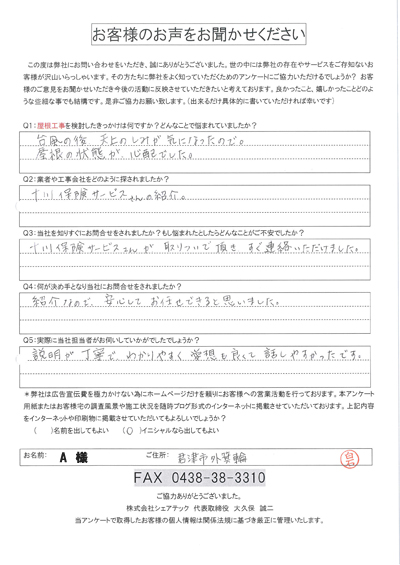 お客様のお声をお聞かせください
この度は弊社にお問い合わせをいただき、誠にありがとうございました。世の中には弊社の存在やサービスをご存知ないお
客様が沢山いらっしゃいます。その方たちに弊社をよく知っていただくためのアンケートにご協力いただけるでしょうか? お客
様のご意見をお聞かせいただき今後の活動に反映させていただきたいと考えております。良かったこと、嬉しかったことどのよ
うな些細な事でも結構です。是非ご協力お願い致します。(出来るだけ具体的に書いていただければ幸いです)
Q1:屋根工事を検討したきっかけは何ですか?どんなことで悩まれていましたか?
台風の後 天上のしみが気になったので。
屋根の状態が、心配でした。
Q2:業者や工事会社をどのように探されましたか?
十川保険サービスさんの紹介。
Q3:当社を知りすぐにお問合せをされましたか?もし悩まれたとしたらどんなことがご不安でしたか?
十川保険サービスさんが取りついで頂きすぐ連絡いただけました。
Q4:何が決め手となり当社にお問合せをされましたか?
紹介なので、安心してお任せできると思いました。
Q5:実際に当社担当者がお伺いしていかがでしたでしょうか?
説明が丁寧で、わかりやすく愛想も良くて話しやすかったです。
*弊社は広告宣伝費を極力かけない為にホームページだけを頼りにお客様への営業活動を行っております。本アンケート
用紙またはお客様宅の調査風景や施工状況を随時ブログ形式のインターネットに掲載させていただいております。上記内容
をインターネットや印刷物に掲載させていただいてもよろしいでしょうか?
( )名前を出してもよい (○)イニシャルなら出してもよい
お名前: A 様 ご住所: 君津市外箕輪
FAX 0438-38-3310
ご協力ありがとうございました。
株式会社シェアテック 代表取締役 大久保 誠二
当アンケートで取得したお客様の個人情報は関係法規に基づき厳正に管理いたします。